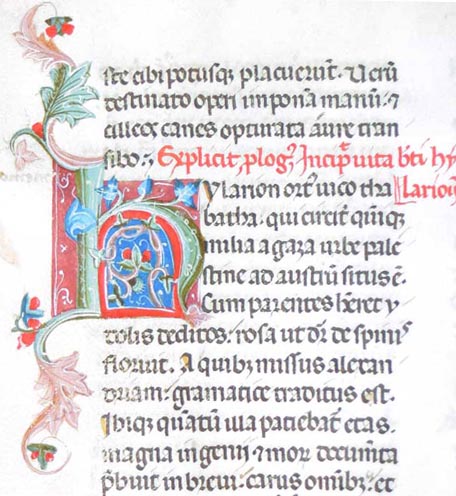 ste cibi potusq; placuerūt. Verū
destinato operi imponā manū. ⁊
scilleos canes opturata aure tran
sibo.
Explicit plog⁹. Incip̄ uita bt̄i hy
larion
ylarion ort⁹ uico tha
batha. qui circit̄ qūiq;
milia a gaza urbe pale
stine ad austrū situs ē.
Cum parentes hēret y
dolis deditos. rosa ut dr̄ de spinis
floruit. A quib; missus alexan
driam. gramatice traditus est.
Ibiq; quātū illa patiebat̄ etas.
magna ingenii ⁊ mor̄ documēta
p̄buit in breui. carus omīb; et